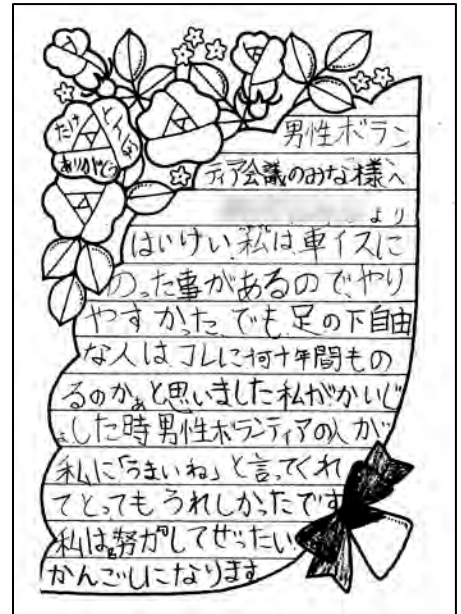 たけ
とんぼ
ありがとう
男性ボラン
ティア会議のみな様へ
より
はいけい、私は車イスに
のった事があるので、やり
やすかった、でも、足の下自由
な人は、コレに何十年間もの
るのかぁと思いました私がかいじ
ょした時男性ボランティアの人が
私に「うまいね」と言ってくれ
てとってもうれしかったです
私は努力してぜったい
かんごしになります